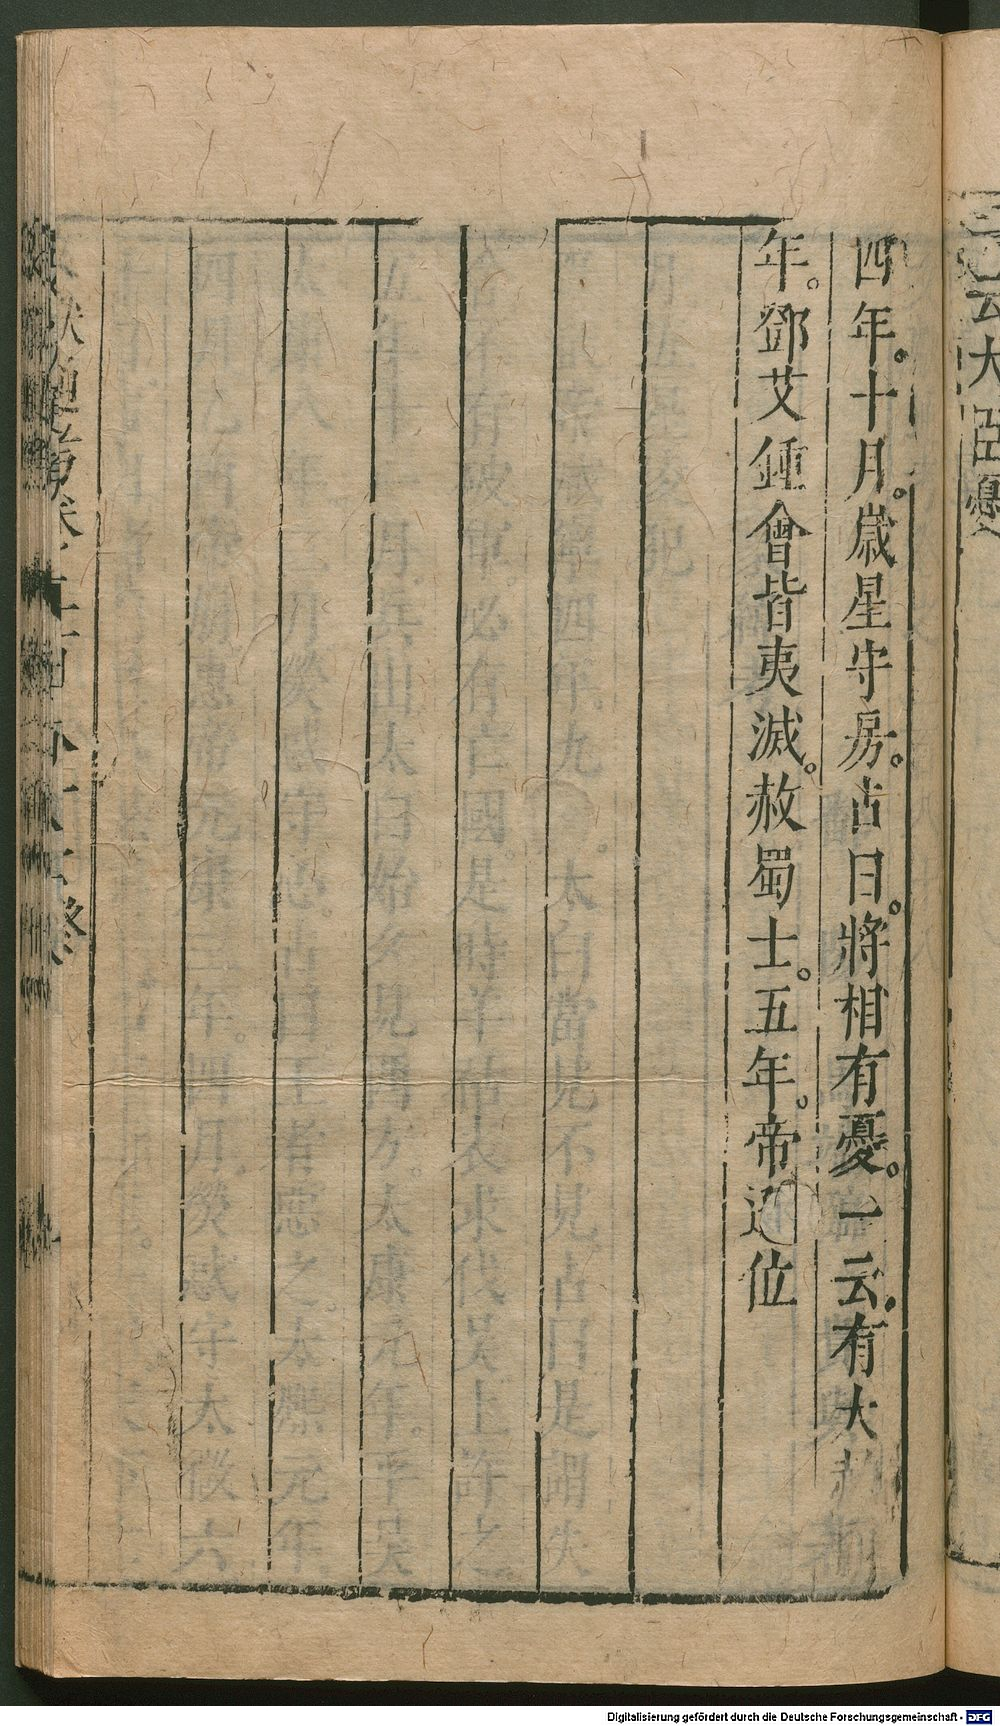 云大臣憂
四年。十月。歲星守房。占曰。將相有憂。一云。有大赦明
年。鄧艾鍾會皆夷滅。赦蜀士。五年。帝遜位
獻通考卷
Digitalisierung gefördert durch die Deutsche Forschungsgemeinschaft - DFG